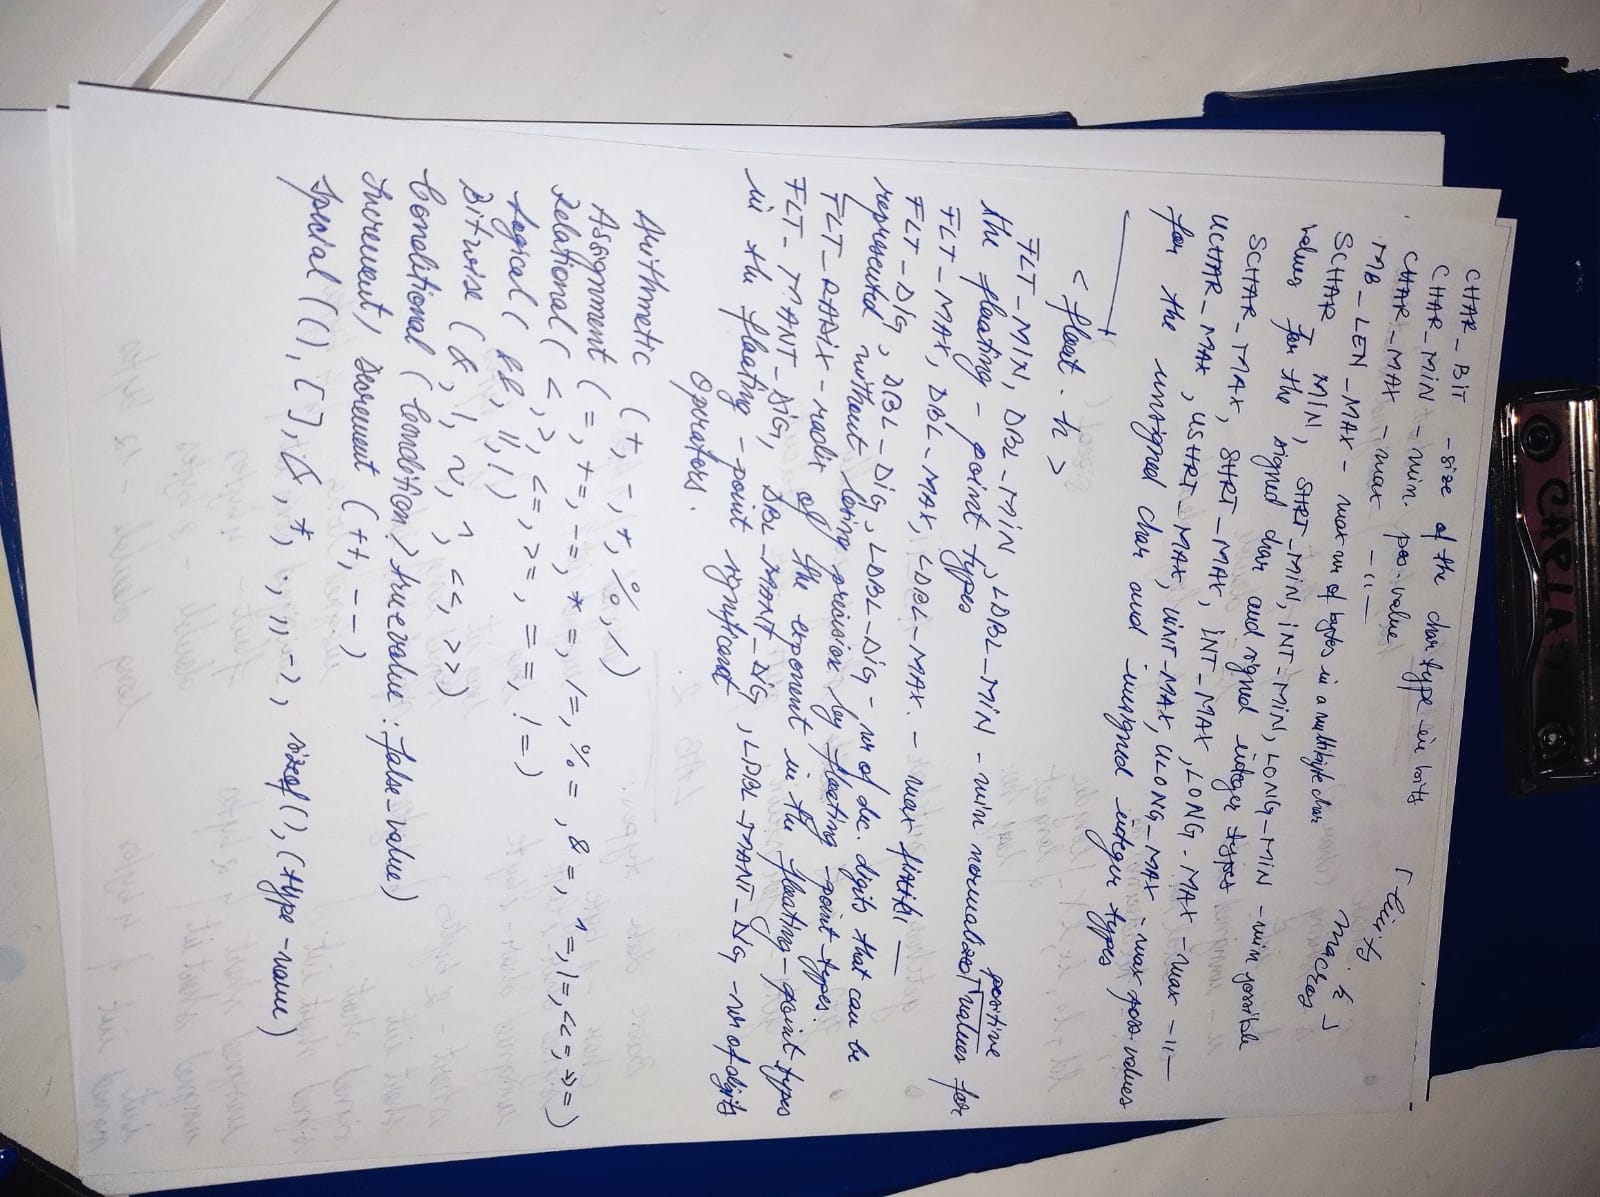 CHAR_BIT - size of the char type in bits
CHAR_MIN - min. pos. value
[limits.h]
macros
CHAR_MAX - max -"-
MB_LEN_MAX - max nr of bytes in a multibyte char
SCHAR_MIN, SHRT_MIN, INT_MIN, LONG_MIN - min possible
values for the signed char and signed integer types
SCHAR_MAX, SHRT_MAX, INT_MAX, LONG_MAX - max -"-
UCHAR_MAX, USHRT_MAX, UINT_MAX, ULONG_MAX - max poss values
for the unsigned char and unsigned integer types
<float.h>
FLT_MIN, DBL_MIN, LDBL_MIN - min normalized positive values for
the floating-point types
FLT_MAX, DBL_MAX, LDBL_MAX. - max finite -"-
FLT_DIG, DBL_DIG, LDBL_DIG - nr of dec. digits that can be
represented without losing precision by floating-point types.
FLT_RADIX - radix of the exponent in the floating-point types
FLT_MANT_DIG, DBL_MANT_DIG, LDBL_MANT_DIG - nr of digits
in the floating-point significant
Operators.
Arithmetic (+, -, *, %, /)
Assignment (=, +=, -=, *=, /=, %=, &=, ^=, |=, <<=, >>=)
Relational (<, >, <=, >=, ==, !=)
Logical (&&, ||, !)
Bitwise (&, |, ~, ^, <<, >>)
Conditional (Condition? true value : false_value)
Increment/Decrement (++, --)
Special ((), [], &, *, ., ,, ->, sizeof(), (type-name)